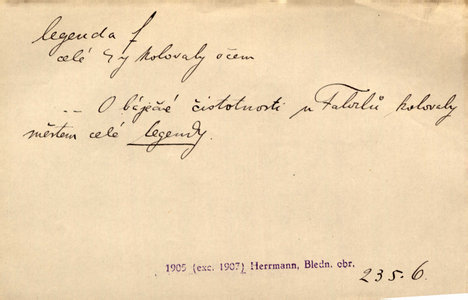 legenda f
celé ~y kolovaly o čem
-- O báječné čistotnosti u Falvilů kolovaly
městem celé legendy.
1905 (exc. 1907) Herrmann, Bledn. obr.
235.6.